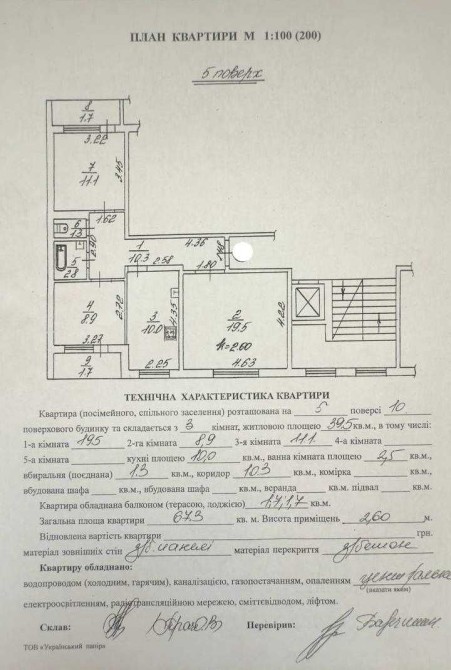 ПЛАН КВАРТИРИ М 1:100 (200)
5 поверх
8
1.7
3.22
7
11.1
3.45
1.62
6
1.3
5
2.8
2.90
1
10.3
4.36
2.58
1.80
1.48
4
8.9
2.72
3.27
3
10.0
4.35
2
19.5
h=2.60
4.22
9
1.7
2.25
4.63
ТЕХНІЧНА ХАРАКТЕРИСТИКА КВАРТИРИ
Квартира (посімейного, спільного заселення) розташована на 5 поверсі 10
поверхового будинку та складається з 3 кімнат, житловою площею 39,5 кв.м., в тому числі:
1-а кімната 19.5 2-га кімната 8,9 3-я кімната 11.1 4-а кімната
5-а кімната кухні площею 10,0 кв.м., ванна кімната площею 2,5 кв.м.,
вбиральня (поєднана) 1.3 кв.м., коридор 10.3 кв.м., комірка кв.м.,
вбудована шафа кв.м., вбудована шафа кв.м., веранда кв.м. підвал кв.м.
Квартира обладнана балконом (терасою, лоджією) 1,7; 1,7 кв.м.
Загальна площа квартири 67.3 кв. м. Висота приміщень 2,60 м.
Відновлена вартість квартири грн.
матеріал зовнішніх стін з/б панелі матеріал перекриття з/бетон
Квартиру обладнано:
водопроводом (холодним, гарячим), каналізацією, газопостачанням, опаленням
(вказати яким)
електроосвітленням, радіотрансляційною мережею, сміттєвідводом, ліфтом.
Склав: Перевірив:
ТОВ «Український папір»